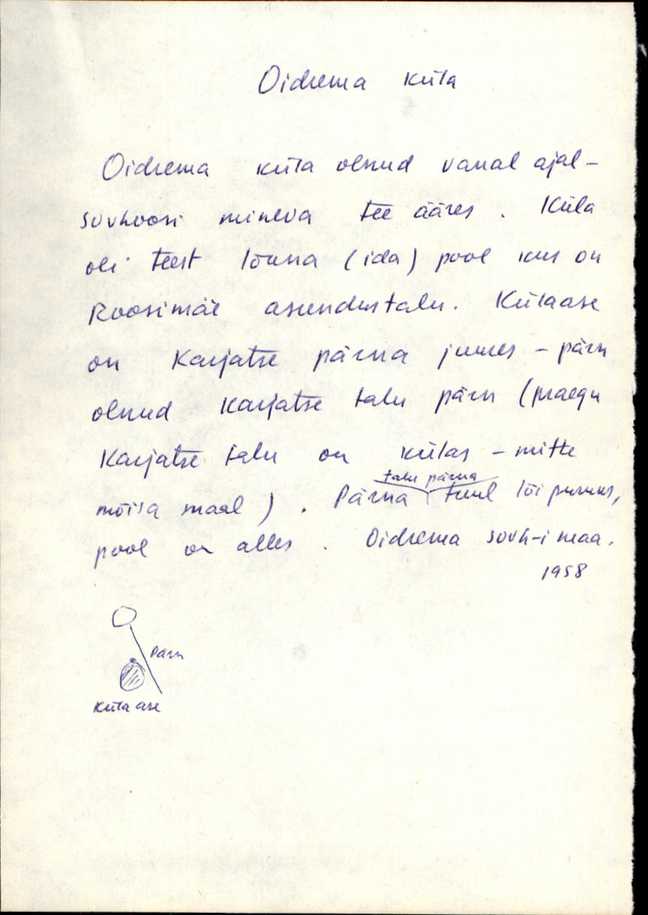 Oidrema küla
Oidrema küla olnud vanal ajal –
sovhoosi mineva tee ääres. Küla
oli teest lõuna (ida) pool kus on
Roosimäe asundustalu. Külaase
on Karjatse pärna juures – pärn
olnud Karjatse talu pärn (praegu
Karjatse talu on külas – mitte
talu pärna
mõisa maal). Pärna tuul lõi puruks,
pool on alles. Oidrema sovh-i maa.
1958
Pärn
Külaase